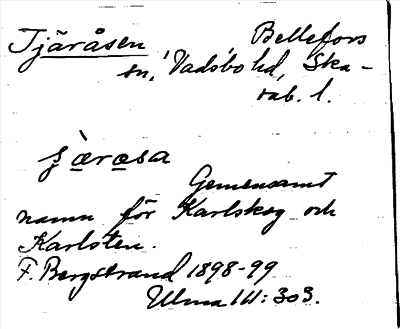 Tjäråsen Bellefors
sn, Vadsbo hd, Ska-
rab. l.
ʂæ̀rəsa
Gemensamt
namn för Karlskog och
Karlsten.
F. Bergstrand 1898-99
Ulma 141: 303.